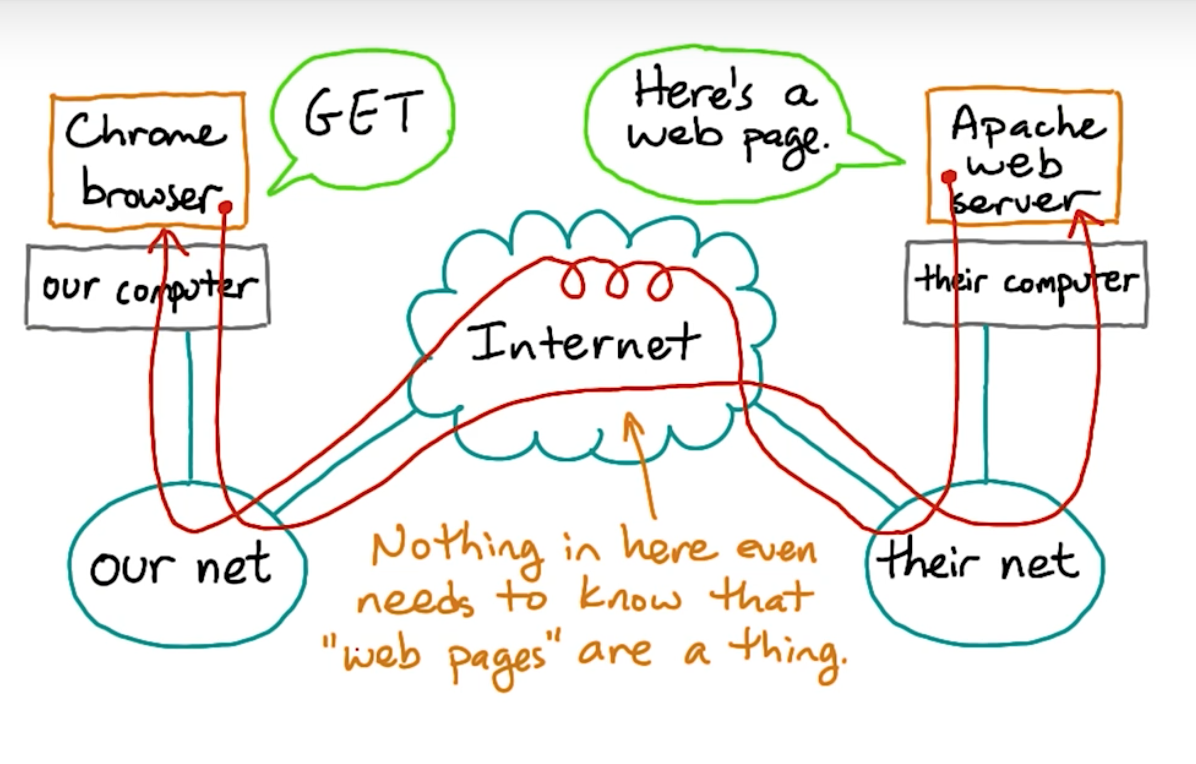 Chrome
browser
GET
Here's a
web page.
Apache
web
server
our computer
their computer
Internet
our net
their net
Nothing in here even
needs to know that
"web pages" are a thing.